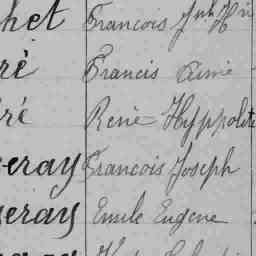 het Francois Jph Hri
ré Francis Aimé
ré René Hyppolite
eray Francois Joseph
eray Emile Eugene